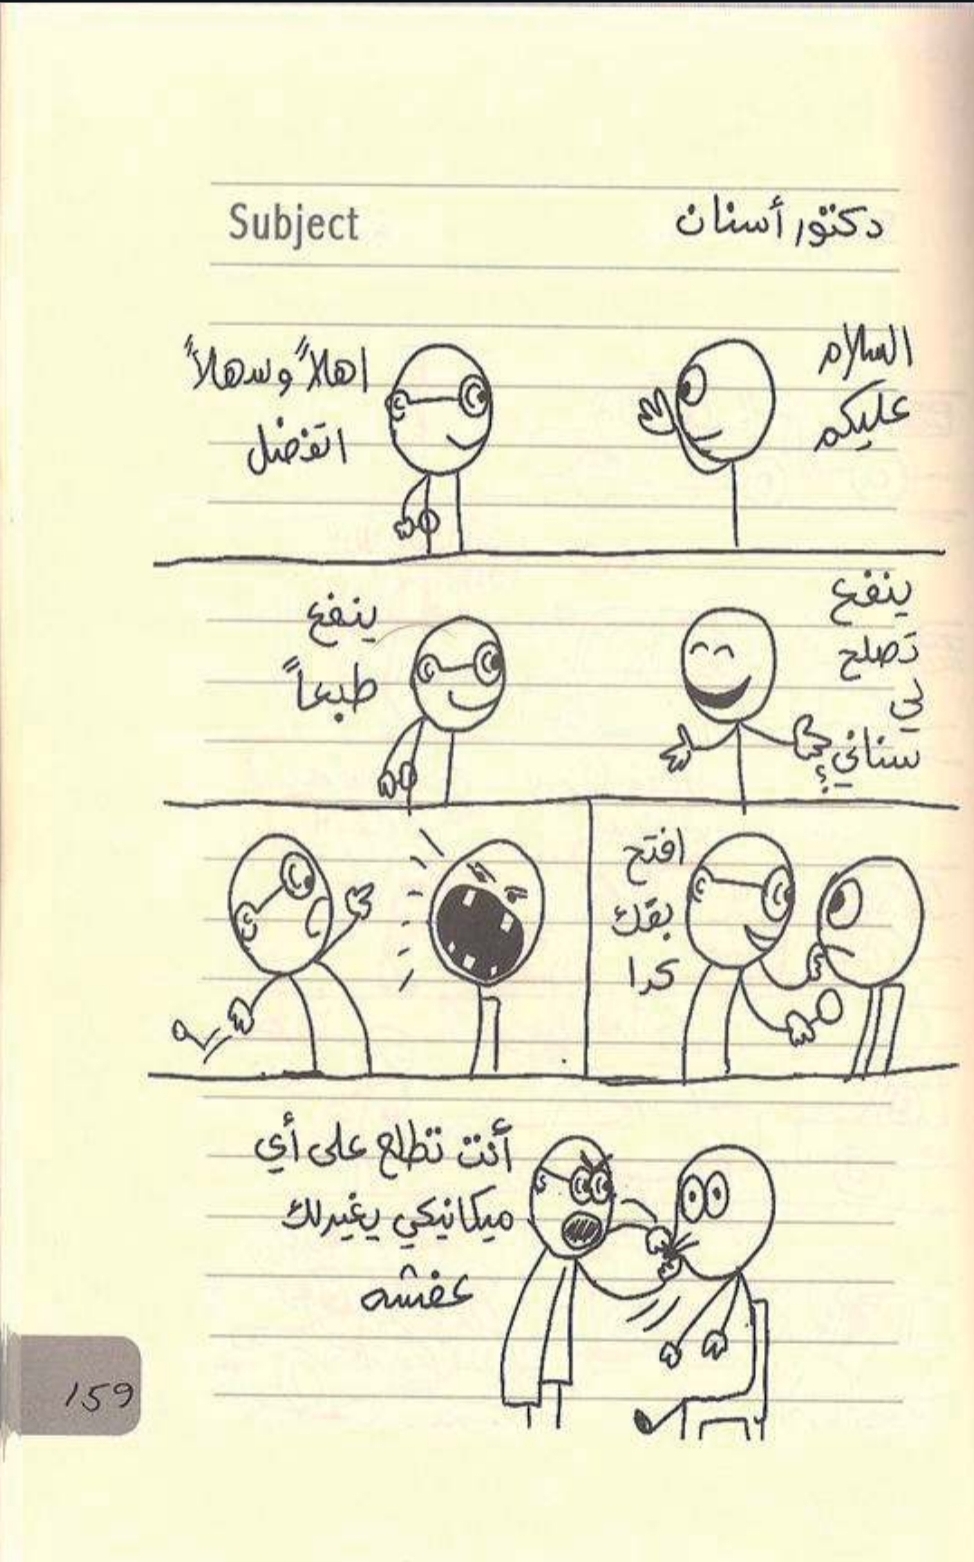 Subject
دكتور أسنان
السلام
عليكم
اهلاً وسهلاً
اتفضل
ينفع
تصلح
لي
سناني؟
ينفع
طبعاً
افتح
بقك
كدا
أنت تطلع على أي
ميكانيكي يغيرلك
عفشه
159